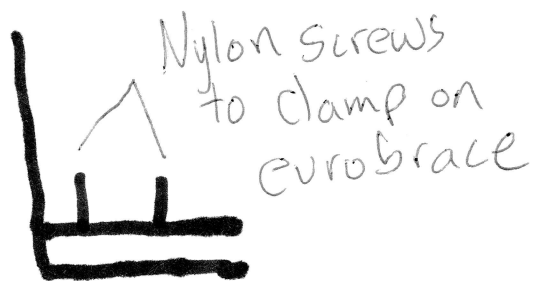 Nylon screws
to clamp on
eurobrace